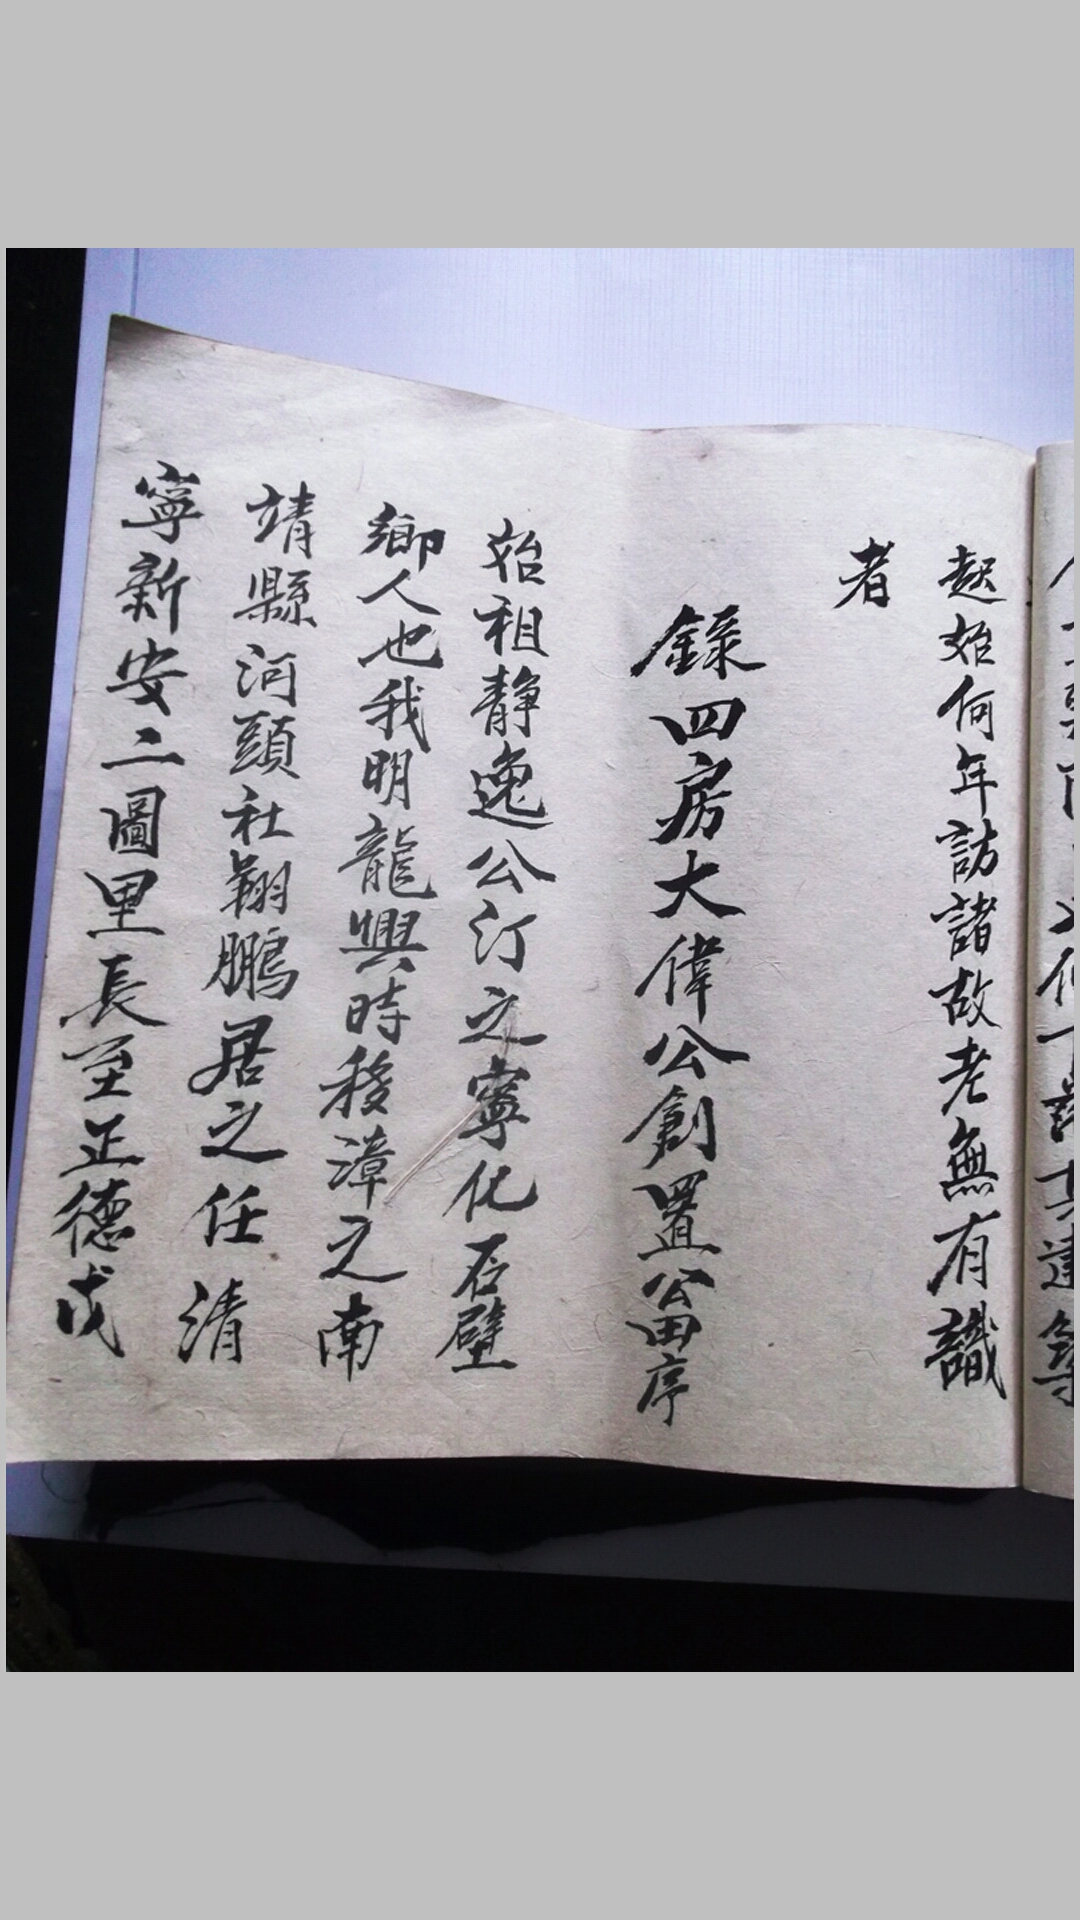 起始何年訪諸故老無有識
者
錄四房大偉公創置公田序
始祖静逸公汀之寧化石壁
鄉人也我明龍興時移漳之南
靖縣河頭社翱鵬居之任清
寧新安二圖里長至正德戊